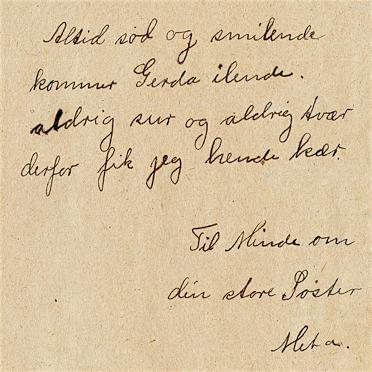 Altid sød og smilende
kommer Gerda ilende.
aldrig sur og aldrig tvær
derfor fik jeg hende kær.
Til Minde om
din store Søster
Meta.